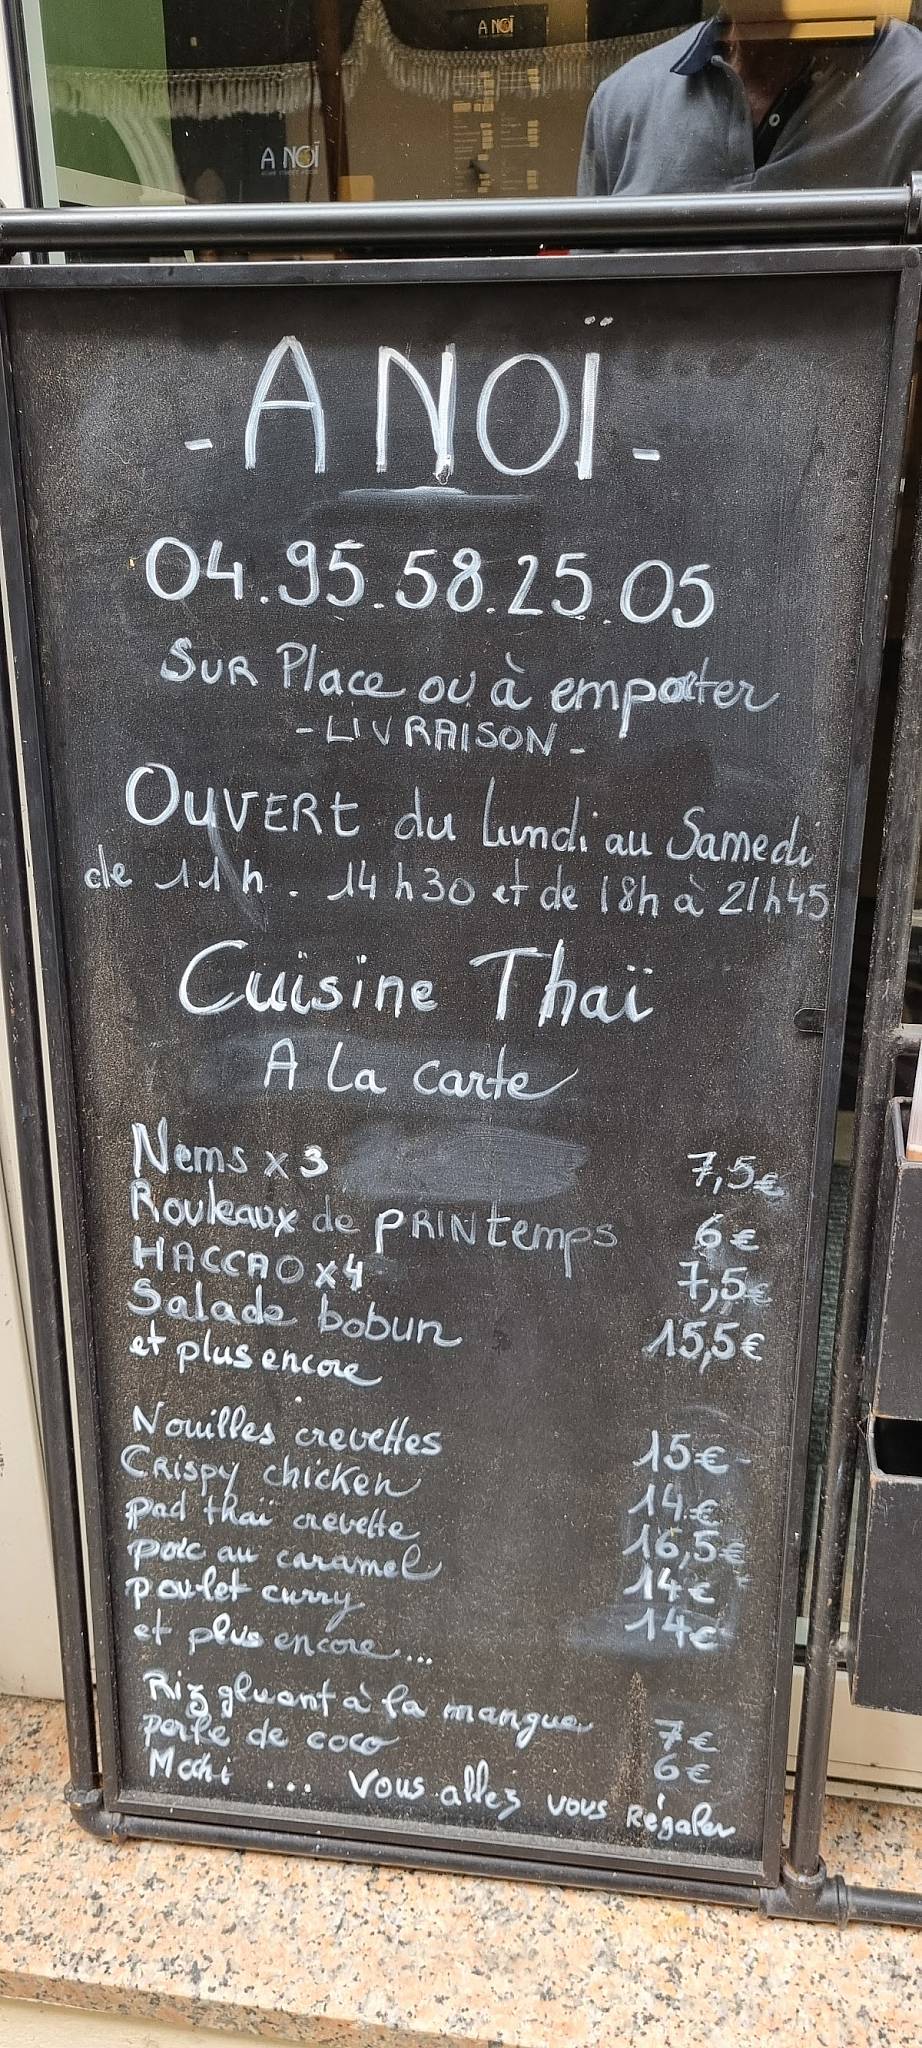 A NOÏ
A NOÏ
- A NOÏ -
04.95.58.25.05
SUR Place ou à emporter
- LIVRAISON -
OUVERT du Lundi au Samedi
de 11h . 14h30 et de 18h à 21h45
Cuisine Thaï
A la carte
Nems x 3 7,5€
Rouleaux de PRINtemps 6€
HACCAO x4 7,5€
Salade bobun 15,5€
et plus encore
Nouilles crevettes 15€
Crispy chicken 14€
pad thaï crevette 16,5€
porc au caramel 14€
poulet curry 14€
et plus encore...
Riz gluant à la mangue 7€
perle de coco 6€
Mochi ... Vous allez vous Régaler